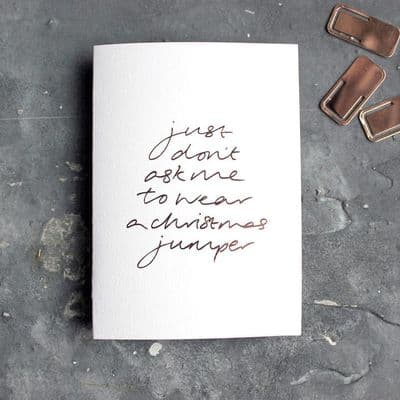 just
don't
ask me
to wear
a christmas
jumper